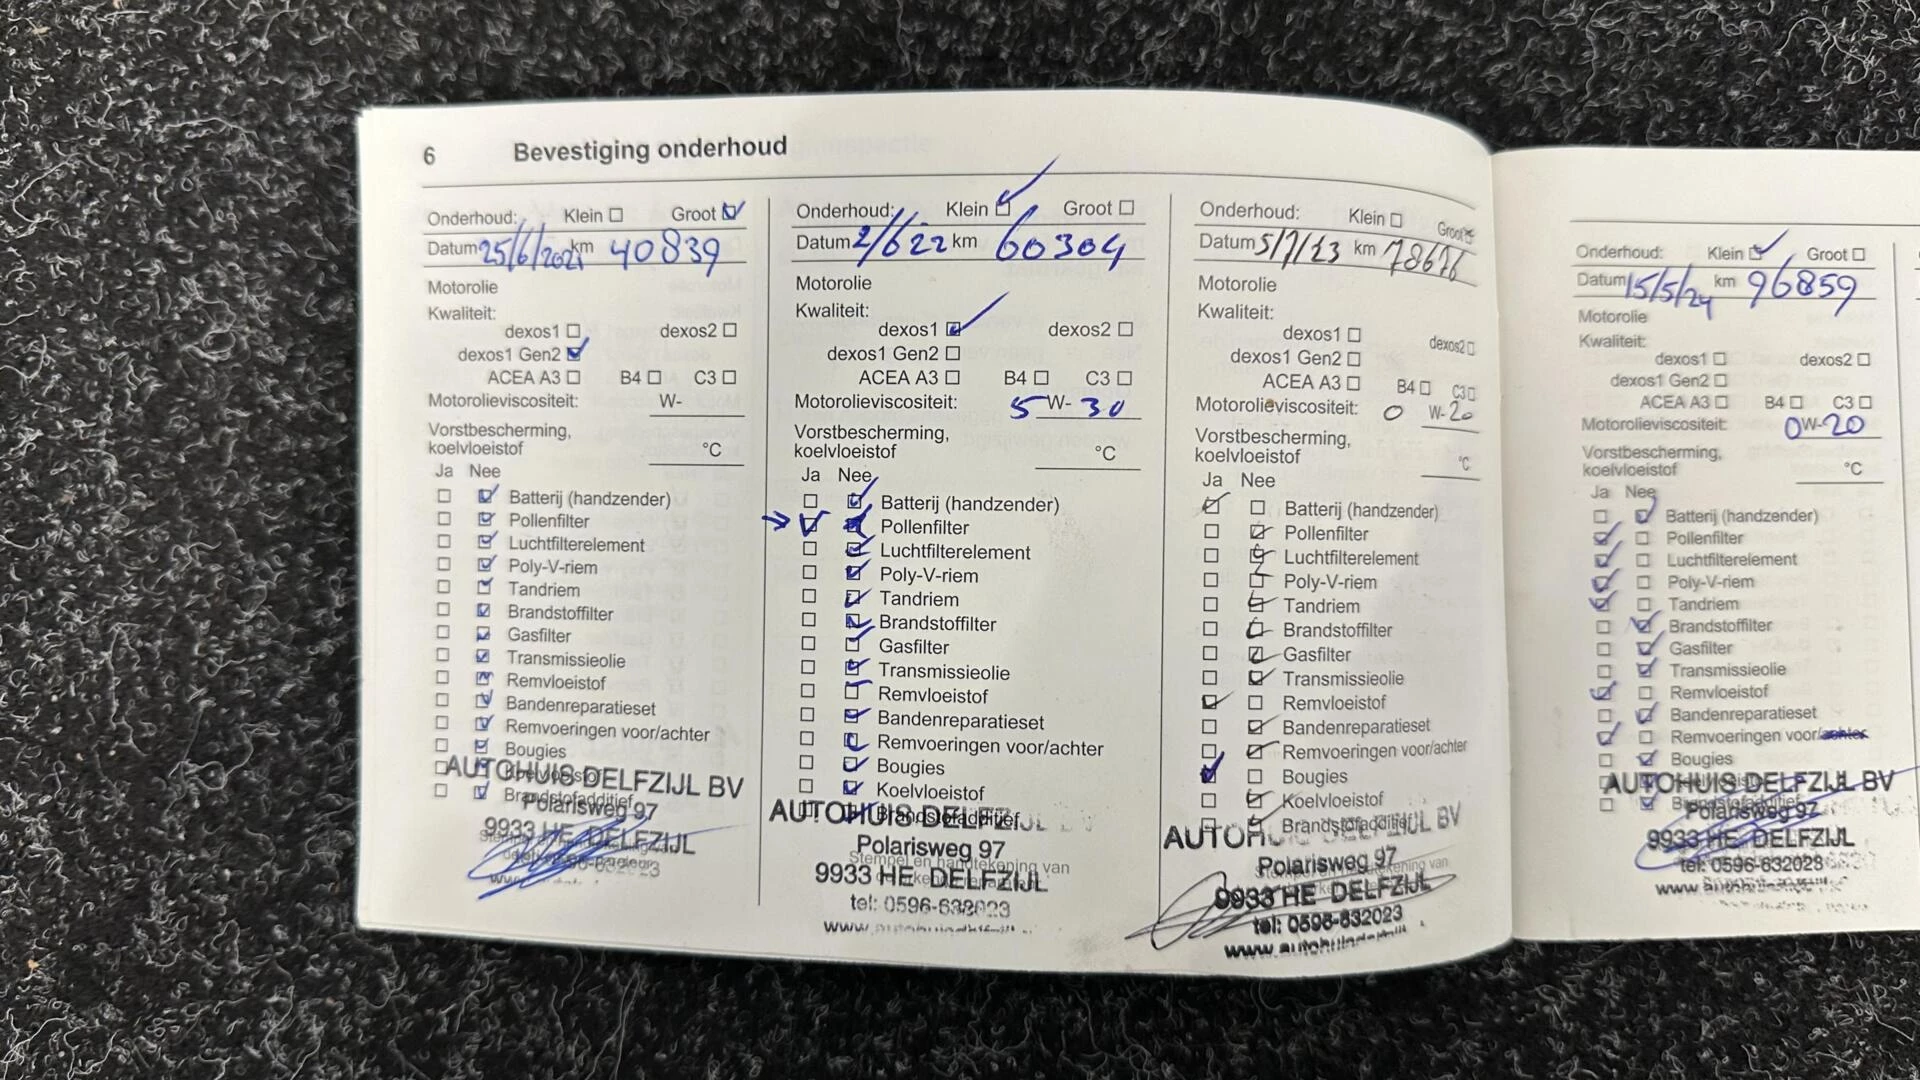 6 Bevestiging onderhoud
Onderhoud: Klein Groot
Datum 25/6/2021 km 40839
Motorolie
Kwaliteit:
dexos1 dexos2
dexos1 Gen2
ACEA A3 B4 C3
Motorolieviscositeit: W-
Vorstbescherming,
koelvloeistof °C
Ja Nee
Batterij (handzender)
Pollenfilter
Luchtfilterelement
Poly-V-riem
Tandriem
Brandstoffilter
Gasfilter
Transmissieolie
Remvloeistof
Bandenreparatieset
Remvoeringen voor/achter
Bougies
Koelvloeistof
AUTOHUIS DELFZIJL BV
Brandstofadditief
Polarisweg 97
9933 HE DELFZIJL
Onderhoud: Klein Groot
Datum 2/6/22 km 60304
Motorolie
Kwaliteit:
dexos1 dexos2
dexos1 Gen2
ACEA A3 B4 C3
Motorolieviscositeit: 5 W- 30
Vorstbescherming,
koelvloeistof °C
Ja Nee
Batterij (handzender)
Pollenfilter
Luchtfilterelement
Poly-V-riem
Tandriem
Brandstoffilter
Gasfilter
Transmissieolie
Remvloeistof
Bandenreparatieset
Remvoeringen voor/achter
Bougies
Koelvloeistof
Brandstofadditief
AUTOHUIS DELFZIJL BV
Polarisweg 97
Stempel en handtekening van
9933 HE DELFZIJL
tel: 0596-632023
Onderhoud: Klein Groot
Datum 5/7/23 km 78676
Motorolie
Kwaliteit:
dexos1 dexos2
dexos1 Gen2
ACEA A3 B4 C3
Motorolieviscositeit: 0 W- 20
Vorstbescherming,
koelvloeistof °C
Ja Nee
Batterij (handzender)
Pollenfilter
Luchtfilterelement
Poly-V-riem
Tandriem
Brandstoffilter
Gasfilter
Transmissieolie
Remvloeistof
Bandenreparatieset
Remvoeringen voor/achter
Bougies
Koelvloeistof
Brandstofadditief
AUTOHUIS DELFZIJL BV
Polarisweg 97
9933 HE DELFZIJL
tel: 0596-632023
Onderhoud: Klein Groot
Datum 15/5/24 km 96859
Motorolie
Kwaliteit:
dexos1 dexos2
dexos1 Gen2
ACEA A3 B4 C3
Motorolieviscositeit: 0 W- 20
Vorstbescherming,
koelvloeistof °C
Ja Nee
Batterij (handzender)
Pollenfilter
Luchtfilterelement
Poly-V-riem
Tandriem
Brandstoffilter
Gasfilter
Transmissieolie
Remvloeistof
Bandenreparatieset
Remvoeringen voor/achter
Bougies
AUTOHUIS DELFZIJL BV
Polarisweg 97
9933 HE DELFZIJL
tel: 0596-632023